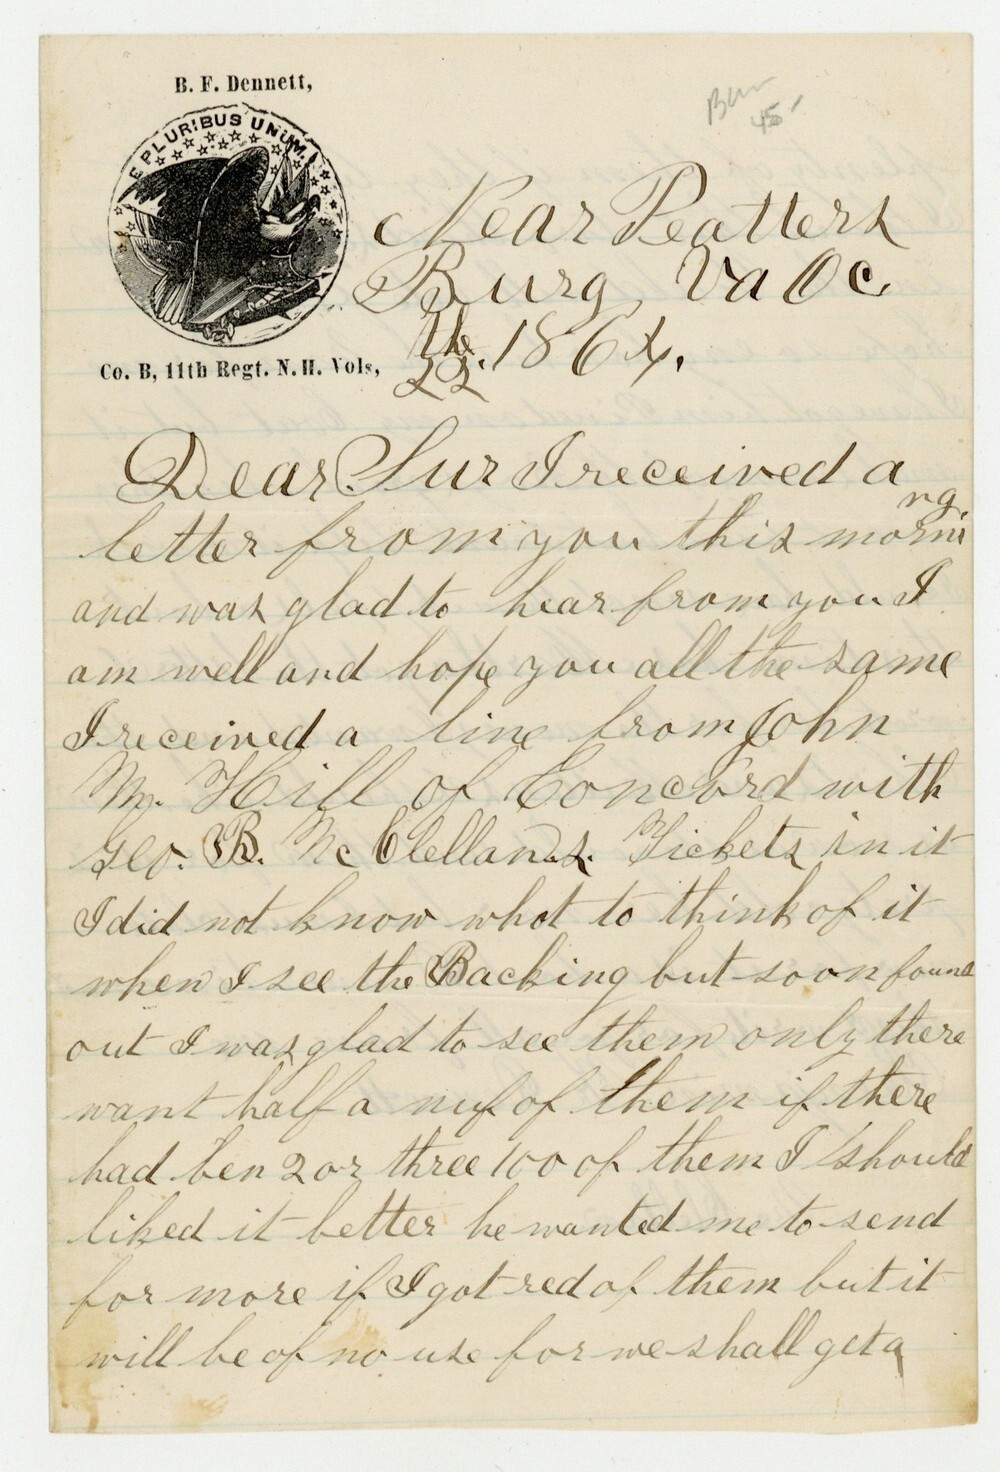 B. F. Dennett,
E PLURIBUS UNUM.
Co. B, 11th Regt. N. H. Vols,
45
Near Peatters
Burg, Va Oc
the 22. 1864.
Dear Sur I received a
letter from you this morning.
and was glad to hear from you I
am well and hope you all the same
I received a line from John
M. Hill of Concord with
Geo. B. McClellands. Tickets in it
I did not know what to think of it
when I see the Backing but soon found
out I was glad to see them only there
want half a nuf of them if there
had ben 2 or three 100 of them I should
liked it better he wanted me to send
for more if I got red of them but it
will be of no use for we shall get a